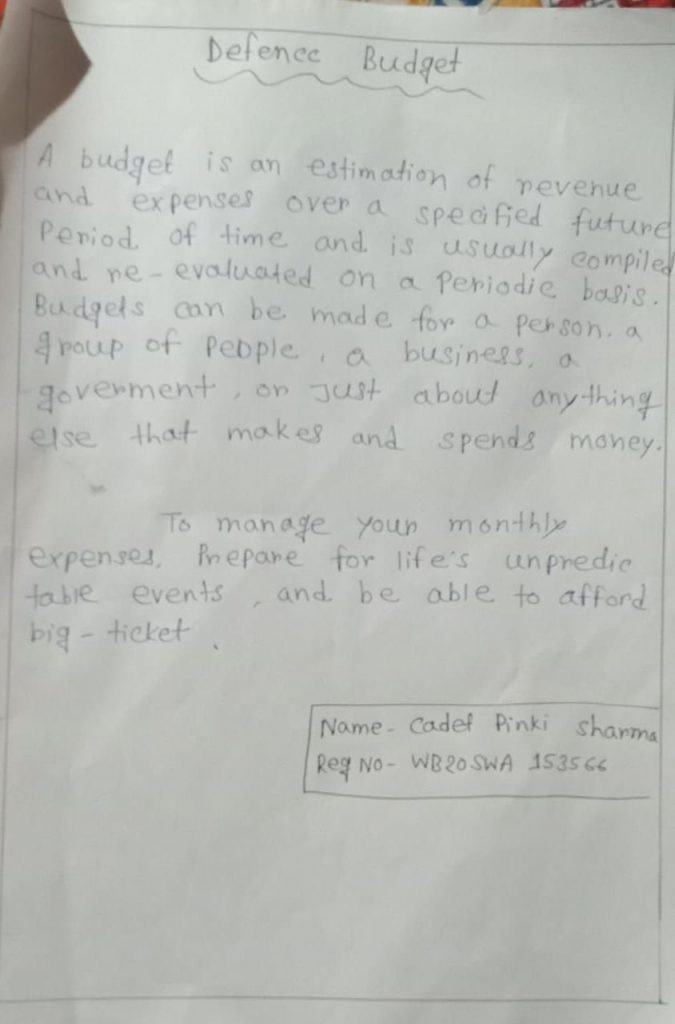 Defence Budget
A budget is an estimation of revenue
and expenses over a specified future
Period of time and is usually compiled
and re-evaluated on a Periodic basis.
Budgets can be made for a person. a
group of People, a business, a
goverment, or Just about anything
else that makes and spends money.
To manage your monthly
expenses, Prepare for life's unpredic
table events, and be able to afford
big-ticket.
Name- Cadet Pinki Sharma
Reg No- WB20SWA 153566